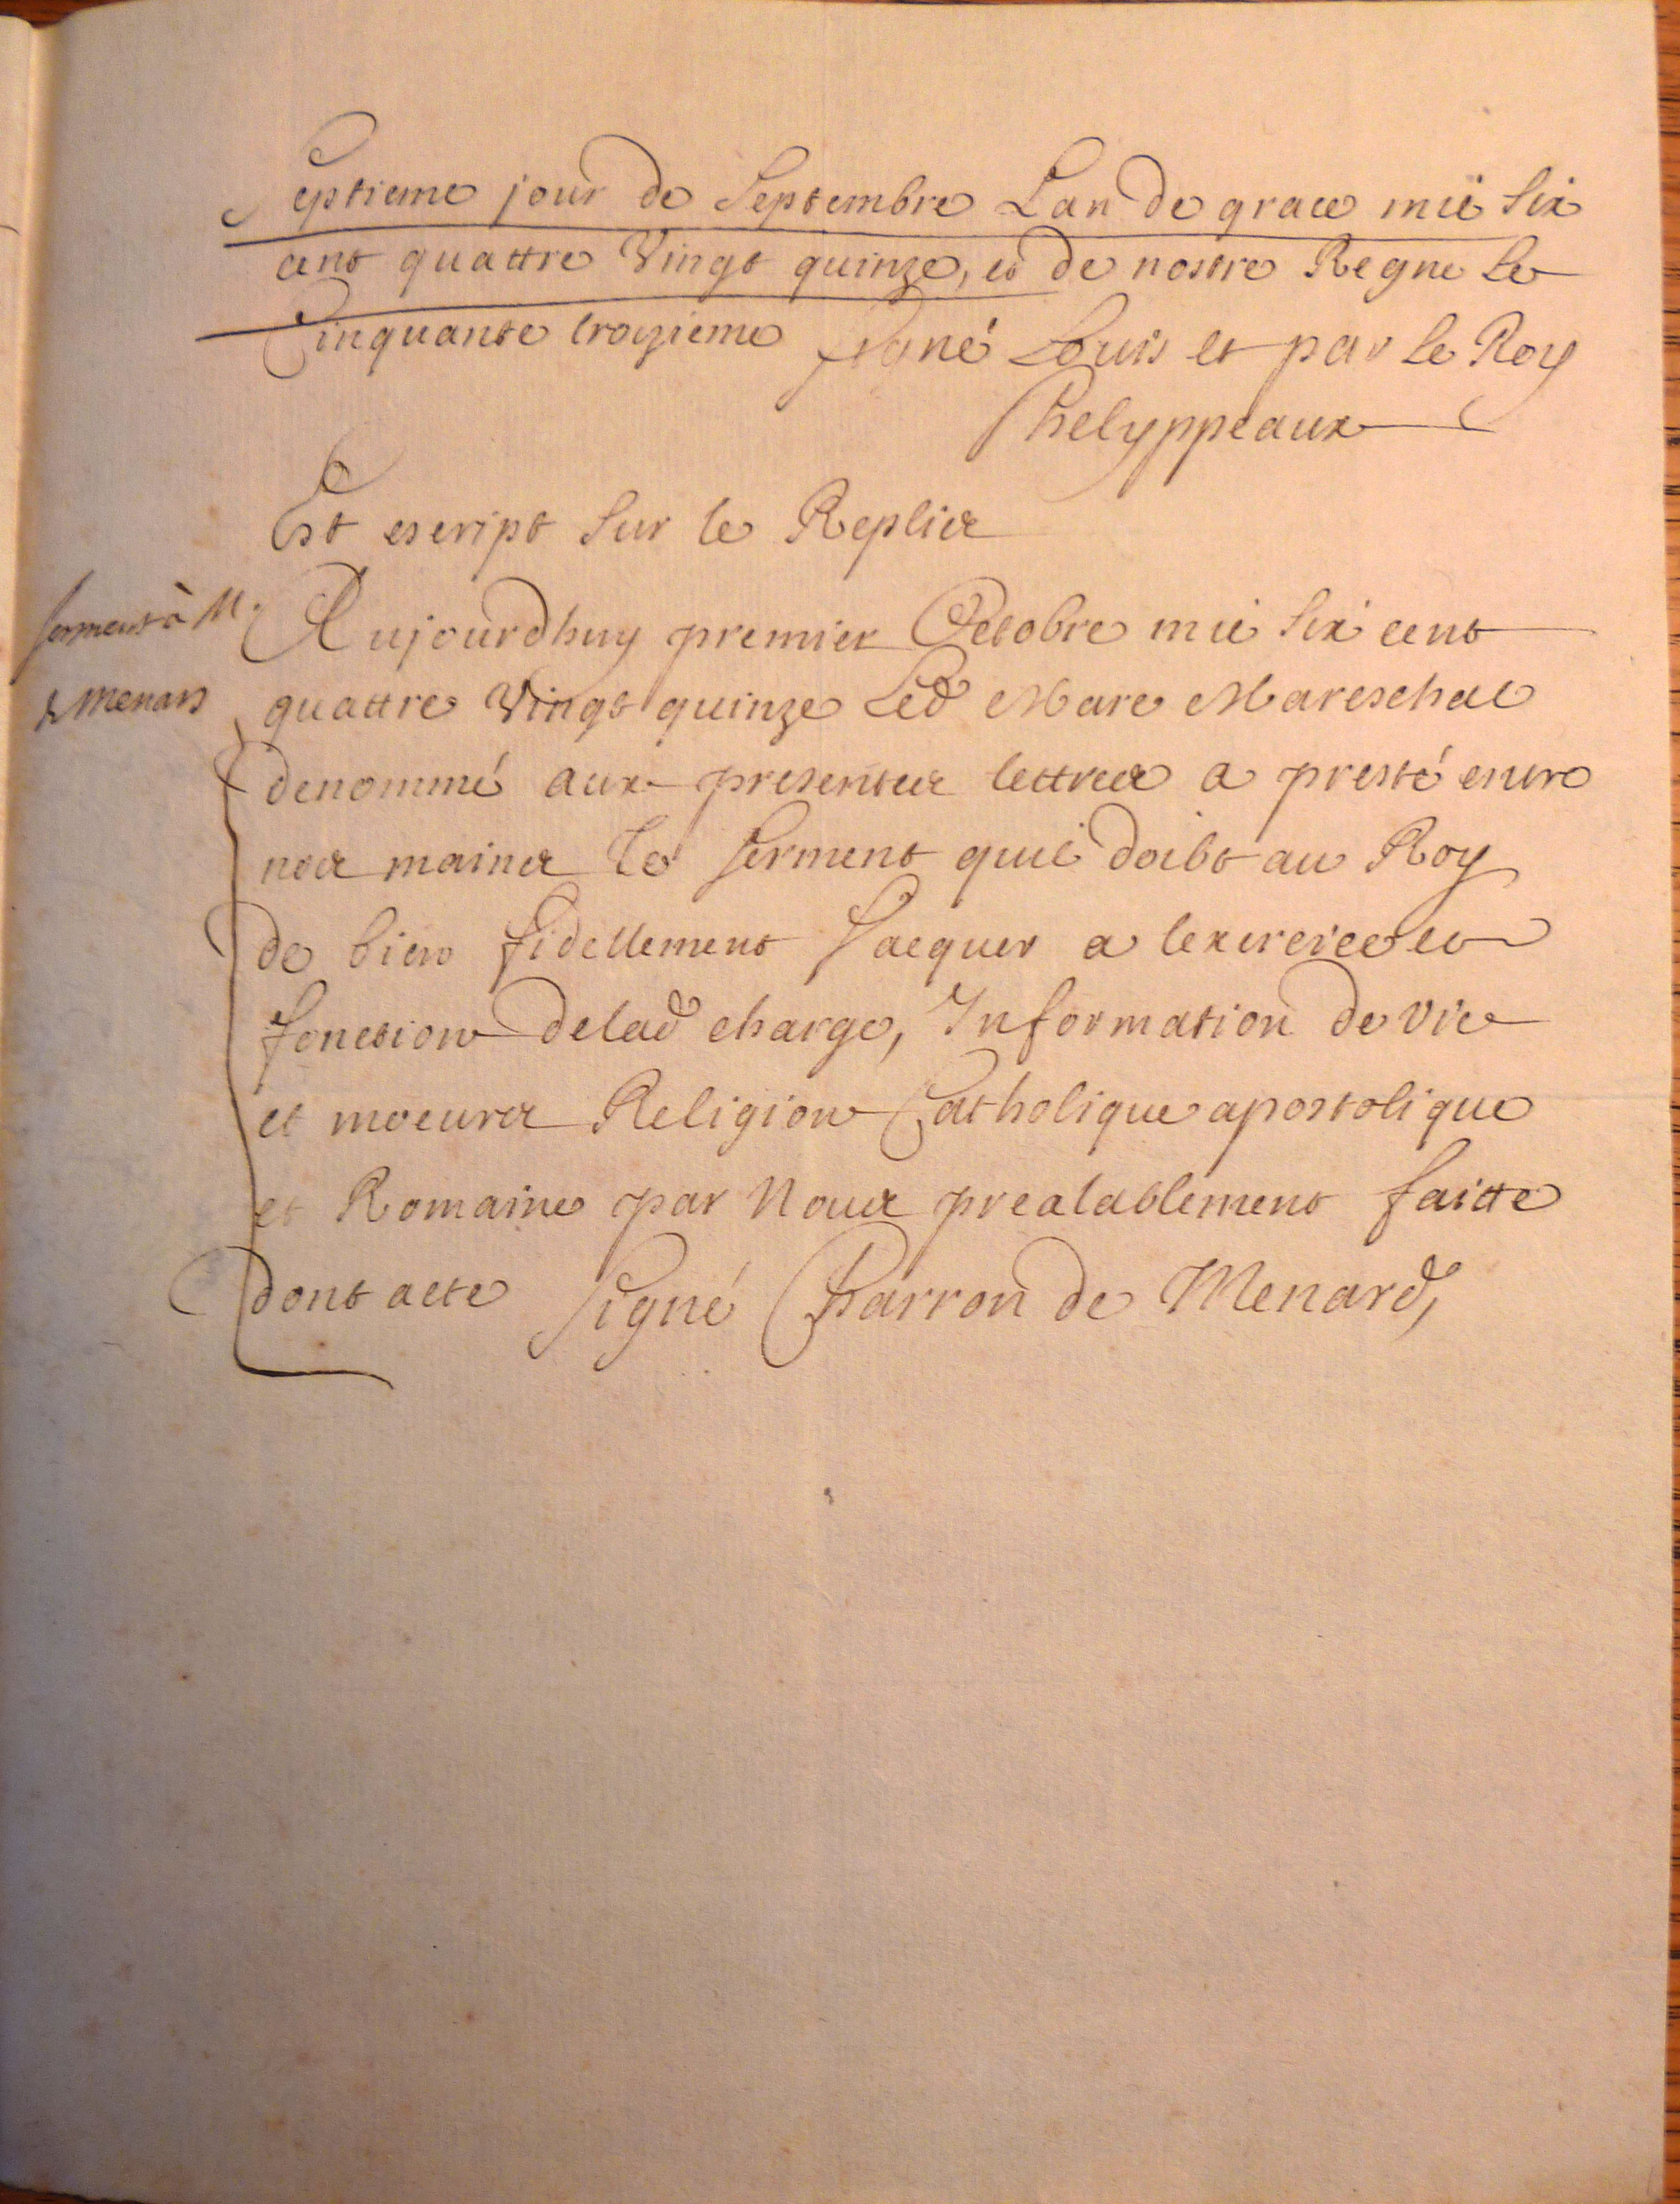 Septieme jour de Septembre Lan de grace mil Six
cent quattre Vingt quinze, et de nostre Regne Le
Cinquante troizieme signé Louis et par le Roy
Phelyppeaux
Est escript sur le Replis
serment à M.
de Menars
Aujourdhuy premier Octobre mil six cent
quattre Vingt quinze Led Marc Mareschal
denommé aux presentes lettres a presté entre
nos mains Le serment quil doibt au Roy
de bien fidellement Vacquer a lexercice et
fonction delad charge, Information de vie
et moeurs Religion Catholique apostolique
et Romaine par Nous prealablement faitte
dont acte Signé Charron de Menard,